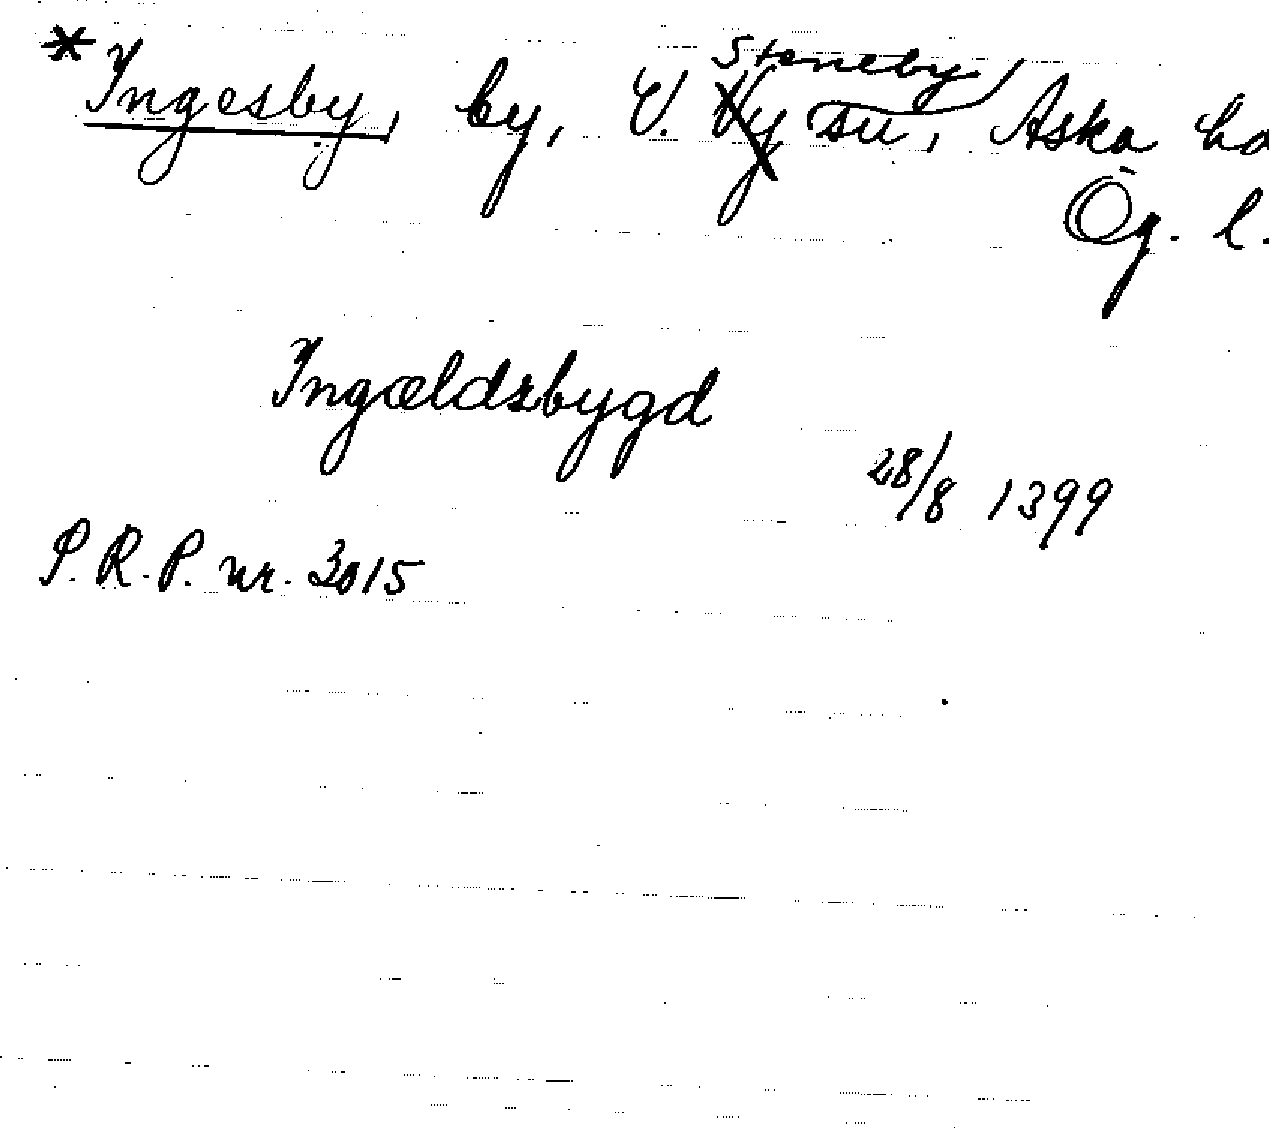 * Ingesby, by, V. Steneby su, Aska ha
Ög. l.
Ingældzbygd
28/8 1399
P.R.P. nr. 3015